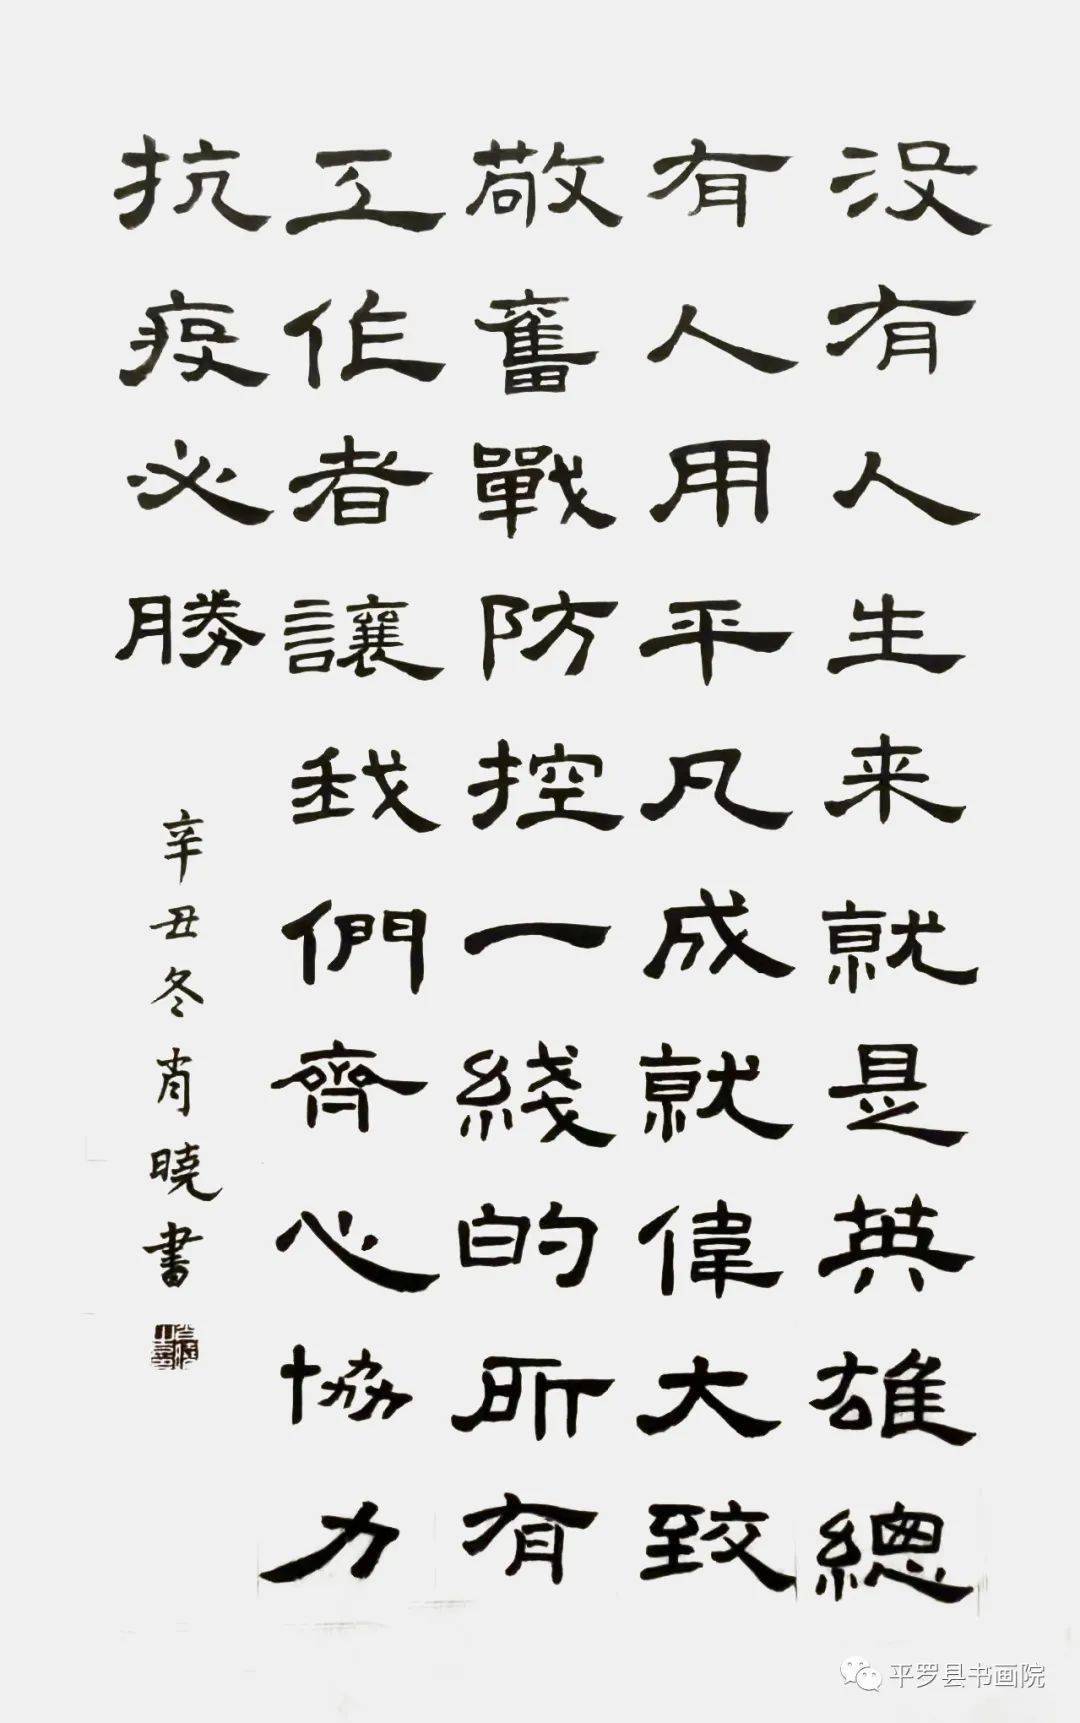 没有人生来就是英雄總
有人用平凡成就偉大致
敬奮戰防控一綫的所有
工作者讓我們齊心協力
抗疫必勝
辛丑冬肖曉書
平罗县书画院